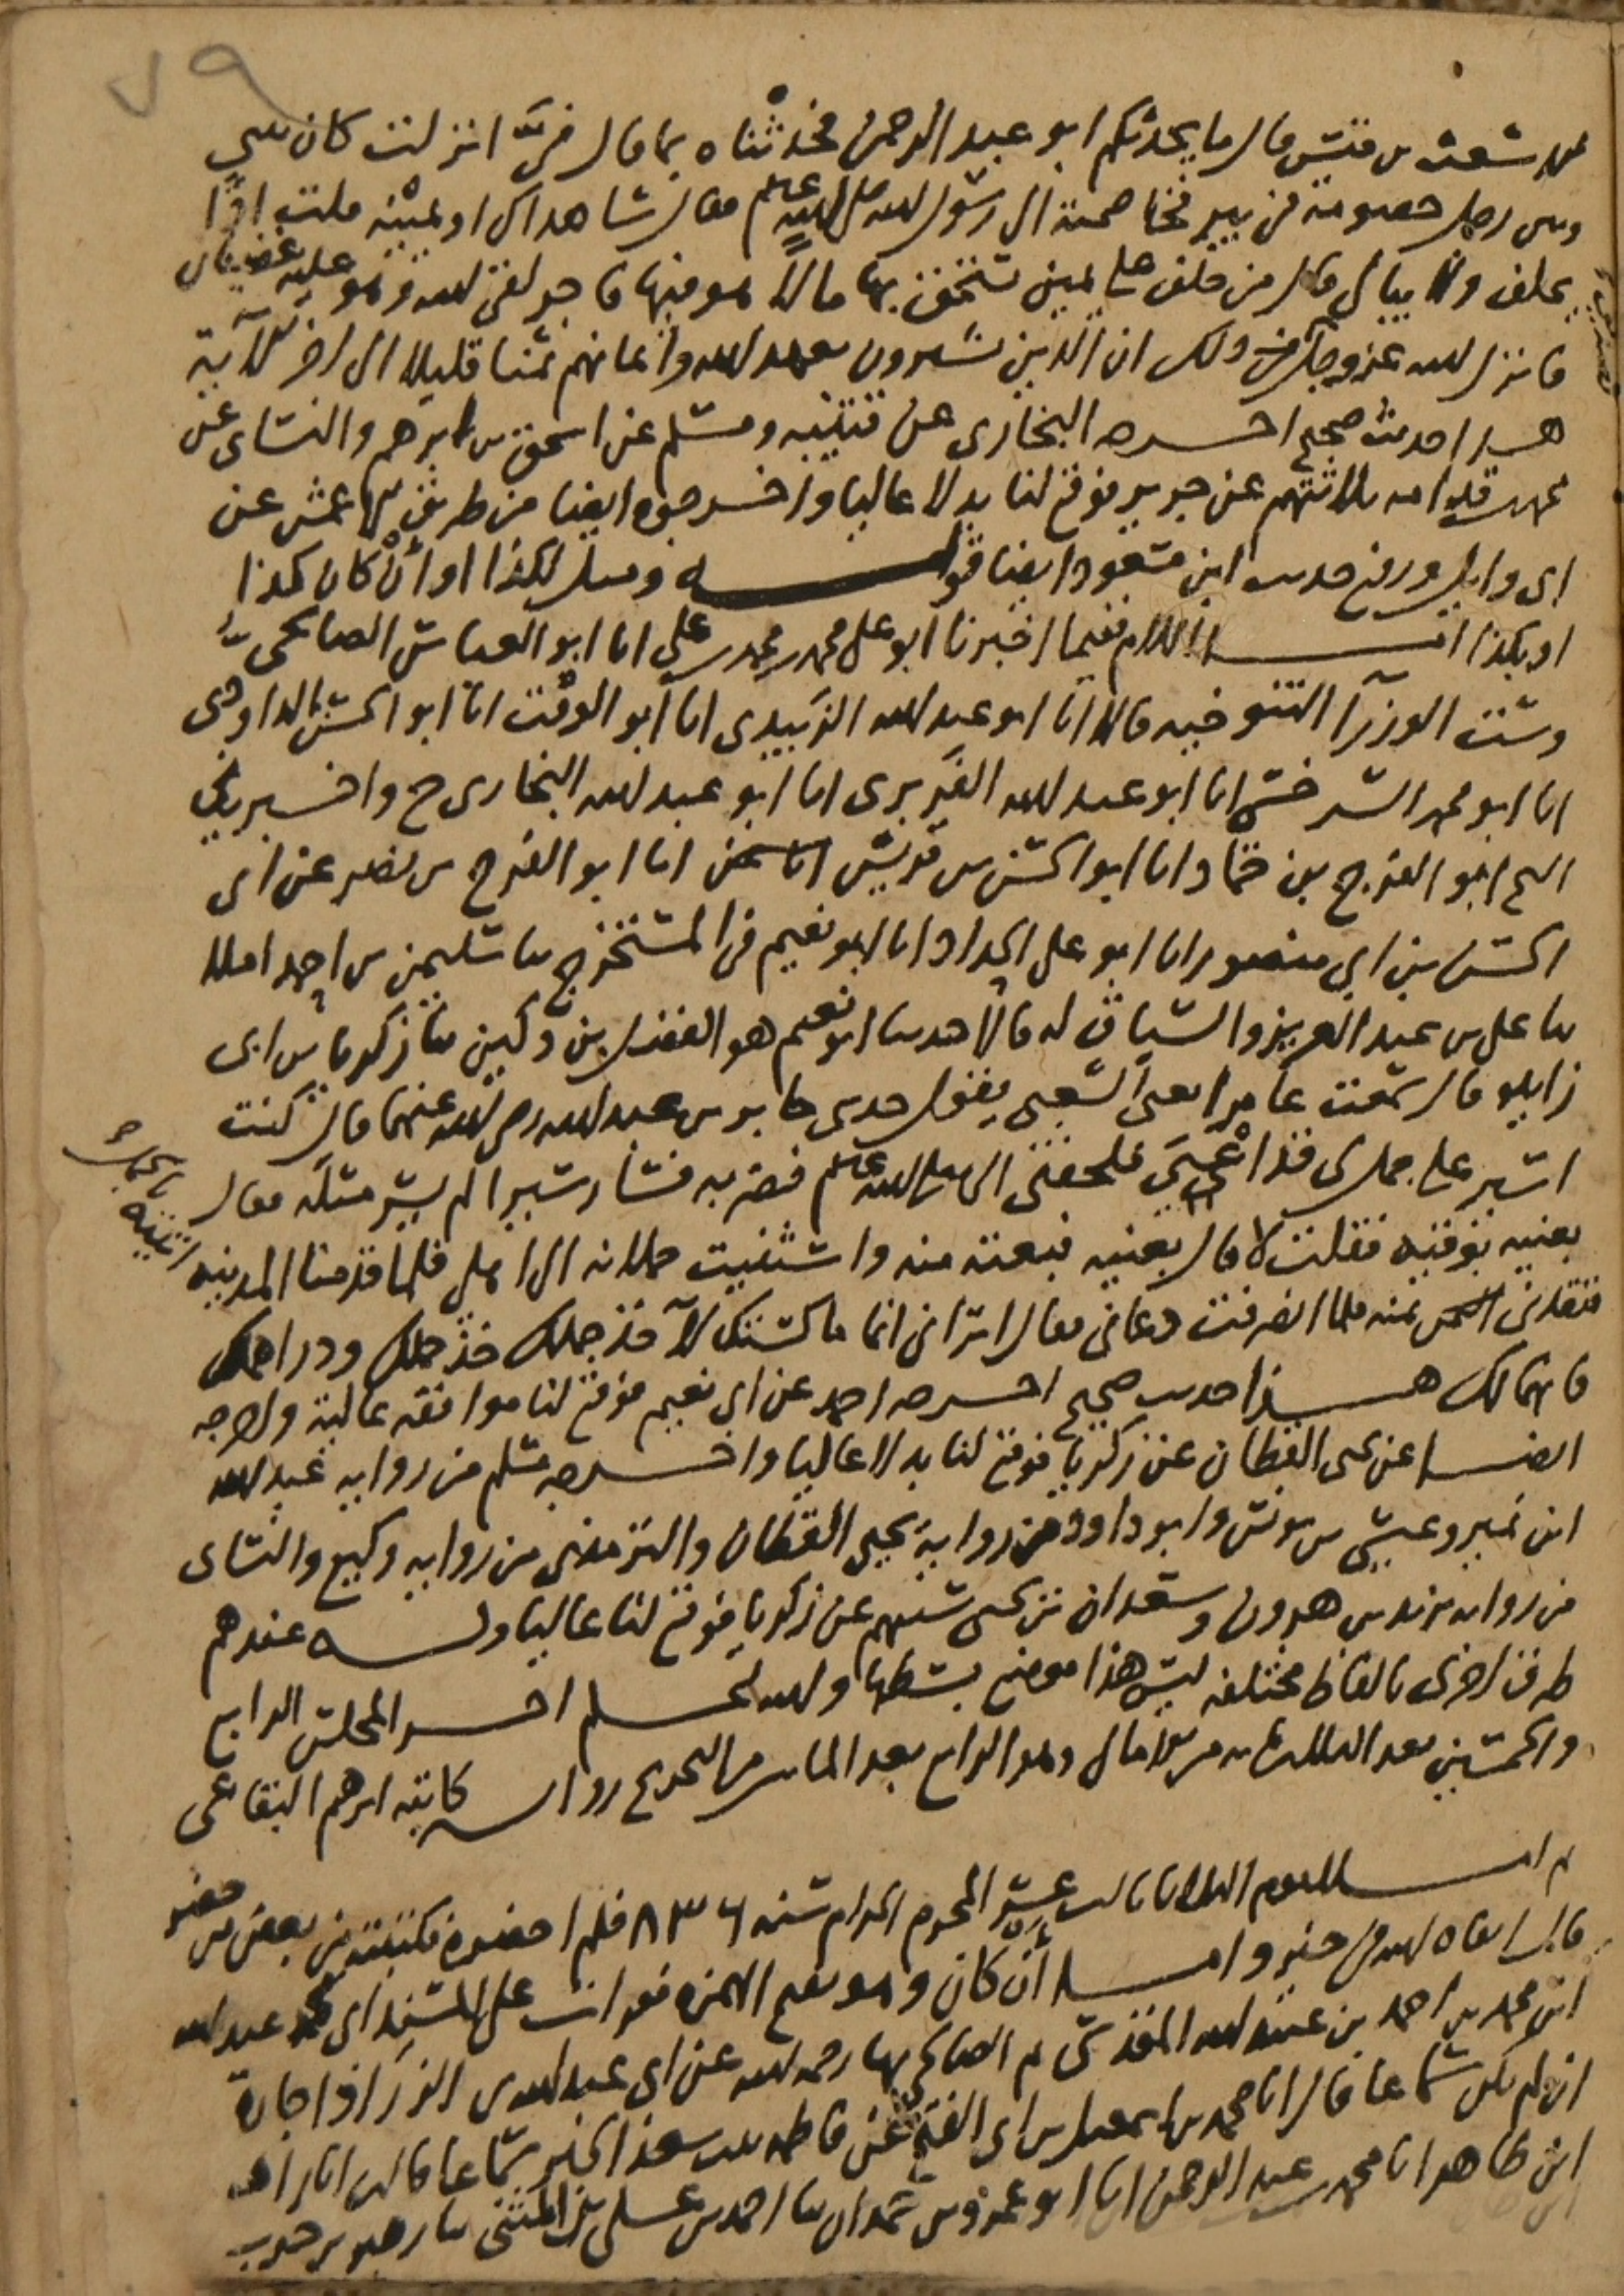 ٧٩
الاشعث بن قيس قال ما يحدثكم ابو عبد الرحمن فحدثناه بما قال فيَّ انزلت كان بيني
وبين رجل خصومة في بير فخاصمته الى رسول الله صلى الله عليه وسلم فقال شاهداك او يمينه قلت اذًا
يحلف ولا يبالي قال من حلف على يمين يستحق بها مالا هو فيها فاجر لقي الله وهو عليه غضبان
فانزل الله عز وجل تصديق ذلك ان الذين يشترون بعهد الله وايمانهم ثمنا قليلا الى اخر الاية
هذا حديث صحيح اخرجه البخاري عن قتيبة ومسلم عن اسحق بن ابرهيم والنساي عن
محمد بن قدامه ثلاثتهم عن جرير فوقع لنا بدلا عاليا واخرجوه ايضا من طريق الاعمش عن
ابي وايل ورفع حديث ابن مسعود ايضا قوله وسل لكذا او أنْ كان كذا
او بكذا اما اللام ففيما اخبرنا ابو علي محمد بن محمد بن علي انا ابو العباس الصالحي
وست الوزرآ التنوخيه قالا انا ابو عبد الله الزَبيدي انا ابو الوقت انا ابو الحسن الداودي
انا ابو محمد السرخسي انا ابو عبد الله الفَربري انا ابو عبد الله البخاري ح واخبرني
الشيخ ابو الفرج بن حماد انا ابو الحسن بن قريش انا ابو الفرج بن نصر عن ابي
الحسن بن ابي منصور انا ابو علي الحداد انا ابو نعيم في المستخرج ثنا سليمن بن احمد املا
ثنا علي بن عبد العزيز والسياق له قالا حدثنا ابو نعيم هو الفضل بن دكين ثنا زكريا بن ابي
زايدة قال سمعت عامرا يعني الشعبي يقول حدثني جابر بن عبد الله رضي الله عنهما قال كنت
اسير على جمل لي قد أعْيَي فلحقني النبي صلى الله عليه وسلم فضربه فسار سيرا لم يسر مثله فقال
بعنيه بوقيه فقلت لا قال بعنيه فبعته منه واستثنيت حملانه الى اهلي فلما قدمنا المدينه اتيته بالجمل
فنقدني ثمنه فلما انصرفت دعاني فقال اتراني انما ماكستك لآخذ جملك خذ جملك ودراهمك
فانهما لك هذا حديث صحيح اخرجه احمد عن ابي نعيم فوقع لنا موافقة عالية واخرجه
ايضا عن يحيى القطان عن زكريا فوقع لنا بدلا عاليا واخرجه مسلم من رواية عبد الله
ابن نمير وعيسى بن يونس وابو داود من رواية يحيى القطان والترمذي من رواية وكيع والنساي
من رواية يزيد بن هرون وسعدان بن يحيى ستتهم عن زكريا فوقع لنا عاليا وله عندهم
طرق اخرى بالفاظ مختلفه ليس هذا موضع بسطها والله اعلم اخر المجلس الرابع
والخمسين بعد الثلثمايه من الامالي وهو الرابع بعد الماتين من التخريج رواية كاتبه ابرهيم البقاعي
ثم املا يوم الثلاثا ثالث عشر المحرم الحرام سنه ٨٣٦ فلم احضره فكتبته من بعض من حضر
قال ابقاه الله في خير واما أنْ كان وهو بفتح الهمزه فقرات على المسند ابي محمد عبد الله
ابن محمد بن احمد بن عبيد الله المقدسي ثم الصالحي بها رحمه الله عن ابي عبد الله بن الزراد اجازة
ان لم يكن سماعا قال انا محمد بن اسمعيل بن ابي الفتح عن فاطمه بنت سعد الخير سماعا قالت انا زاهر
ابن طاهر انا محمد بن عبد الرحمن انا ابو عمرو بن حمدان ثنا احمد بن علي بن المثنى ثنا زهير بن حرب